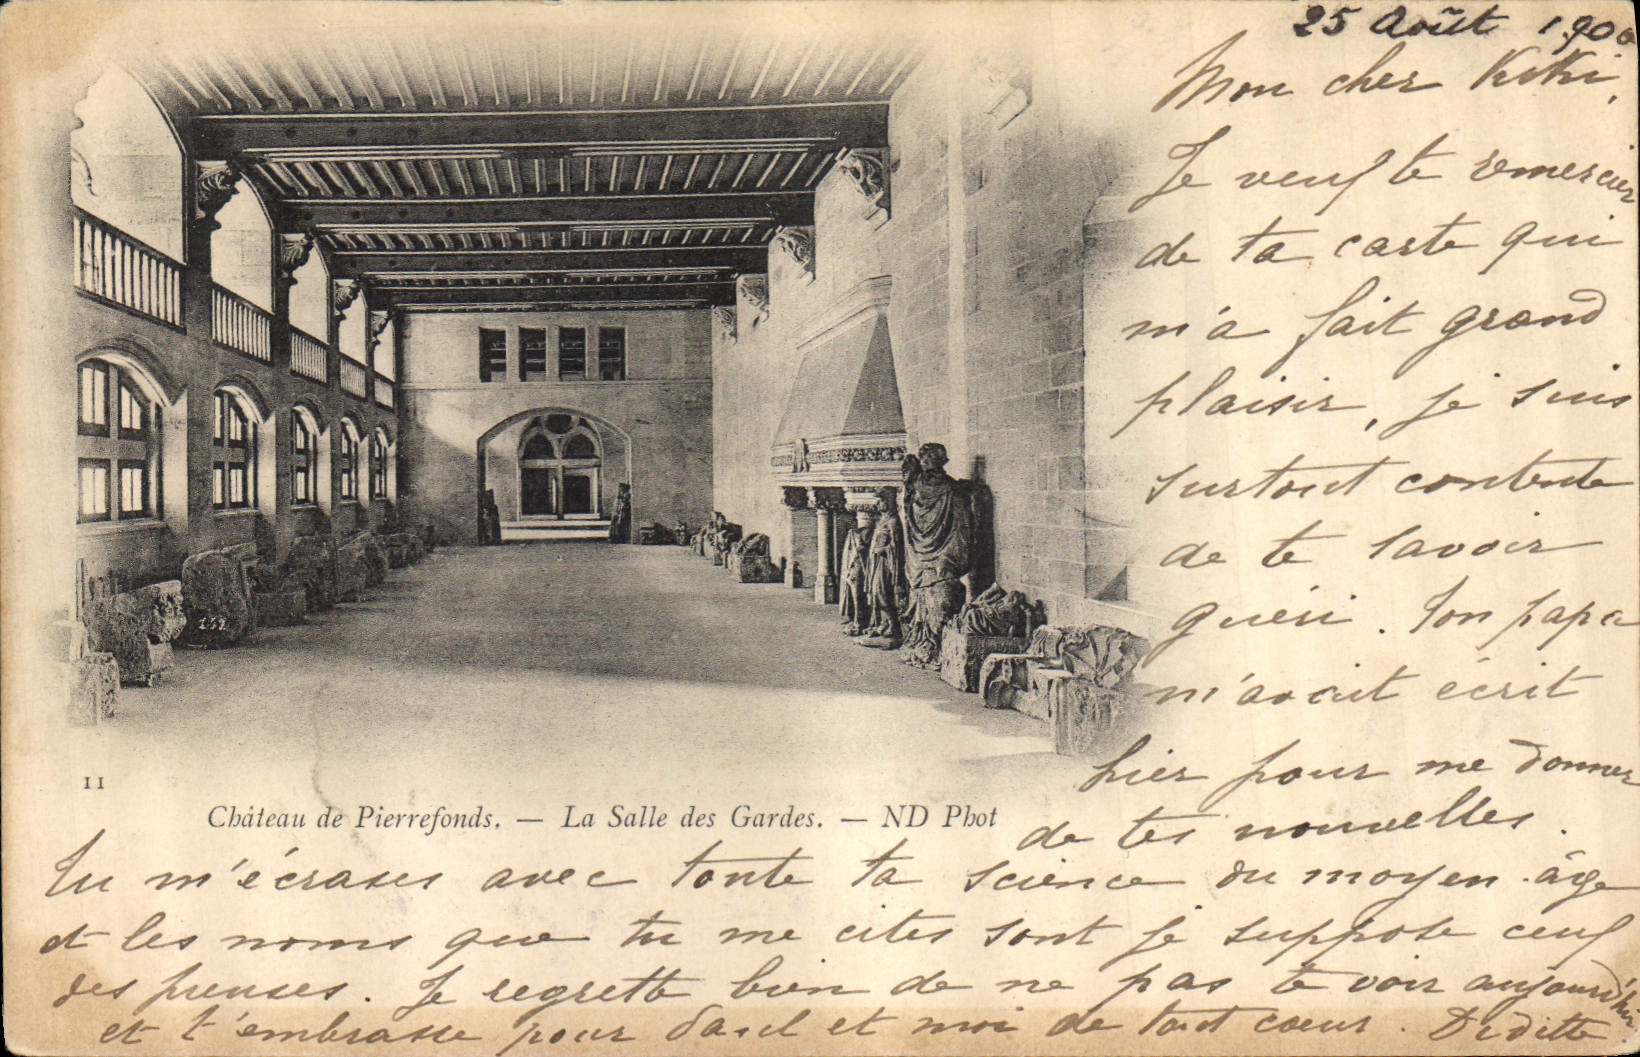 25 Août 1900
Mon cher Kiki,
Je veux te remercier
de ta carte qui
m'a fait grand
plaisir, je suis
surtout contente
de te savoir
guéri. Ton papa
m'avait écrit
hier pour me donner
de tes nouvelles.
142
11
Château de Pierrefonds. — La Salle des Gardes. — ND Phot
Tu m'écrases avec toute ta science du moyen âge
et les noms que tu me cites sont je suppose ceux
des preuses. Je regrette bien de ne pas te voir aujourd'hui
et t'embrasse pour et moi de tout cœur. Diditte.